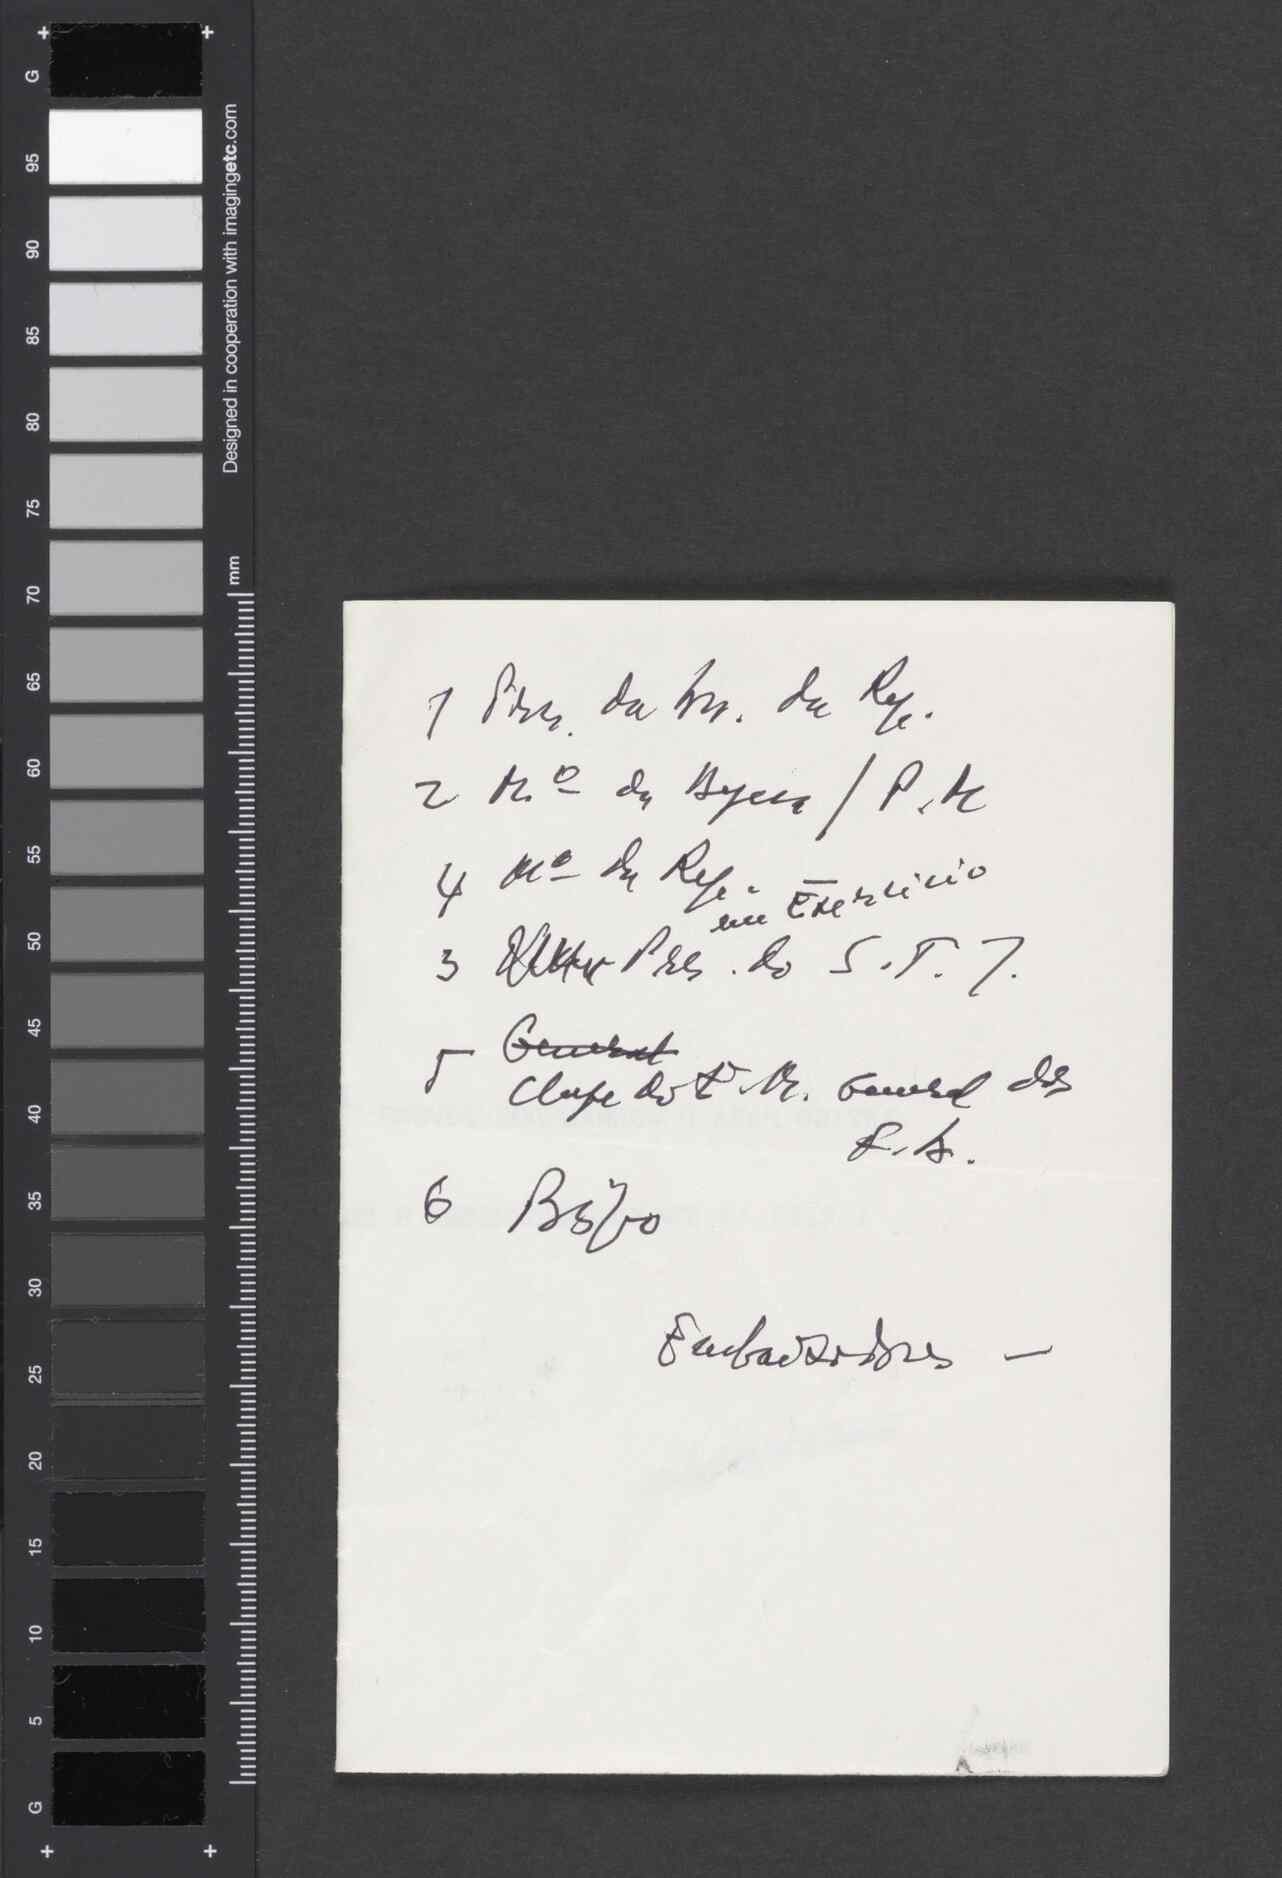 G
95
90
85
80
75
70
65
60
55
50
45
40
35
30
25
20
15
10
5
G
Designed in cooperation with imagingetc.com
mm
1 Pres. da da Rep.
2 Mº da / P.M
4 Mº da Rep. -
em Exercicio
3 Pres. do S.T.J.
5 General
Chefe do E. M. General das
F.A.
6 Bispo
Embaixadores -